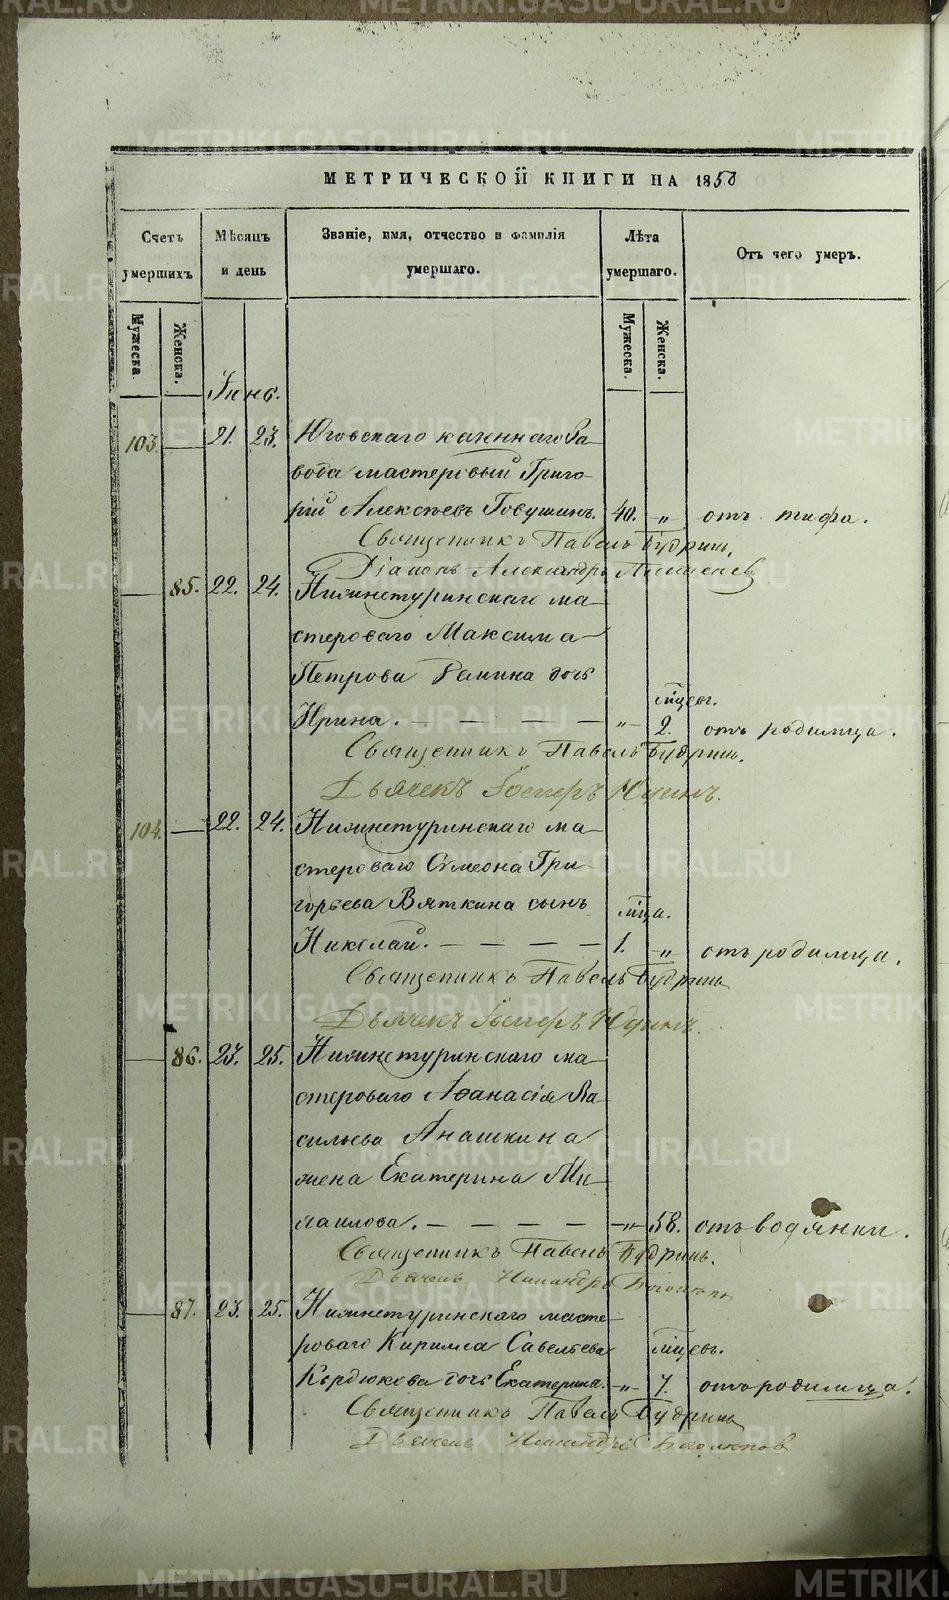 МЕТРИЧЕСКОЙ КНИГИ НА 1850
Счетъ умершихъ
Мѣсяцъ и день
Званіе, имя, отчество и фамилія умершаго.
Лѣта умершаго.
Отъ чего умеръ.
Мужеска.
Женска.
Мужеска.
Женска.
Іюнь.
103. 21. 23. Юговскаго казеннаго За-
вода мастеровый Григо-
рій Алексѣевъ Говушинъ. 40. „ отъ тифа.
Священникъ Павелъ Будринъ.
Діаконъ Александръ
85. 22. 24. Нижнетуринскаго ма-
стероваго Максима
Петрова Ранина дочь
мѣсяц.
Ирина. „ 2. отъ родимца.
Священникъ Павелъ Будринъ.
Дьячекъ Юдинъ.
104. 22. 24. Нижнетуринскаго ма-
стероваго Симеона Гри-
горьева Вяткина сынъ
мца.
Николай. 1. „ отъ родимца.
Священникъ Павелъ Будринъ
Дьячекъ Юдинъ.
86. 23. 25. Нижнетуринскаго ма-
стероваго Аѳанасія Ва-
сильева Анашкина
жена Екатерина Ми-
хаилова. „ 58. отъ водянки.
Священникъ Павелъ Будринъ.
Дьячекъ Никандръ
87. 23. 25. Нижнетуринскаго масте-
роваго Кирилла Савельева мѣсяц.
Кордюкова дочь Екатерина. „ 7. отъ родимца.
Священникъ Павелъ Будринъ
Дьячекъ Никандръ
METRIKI.GASO-URAL.RU